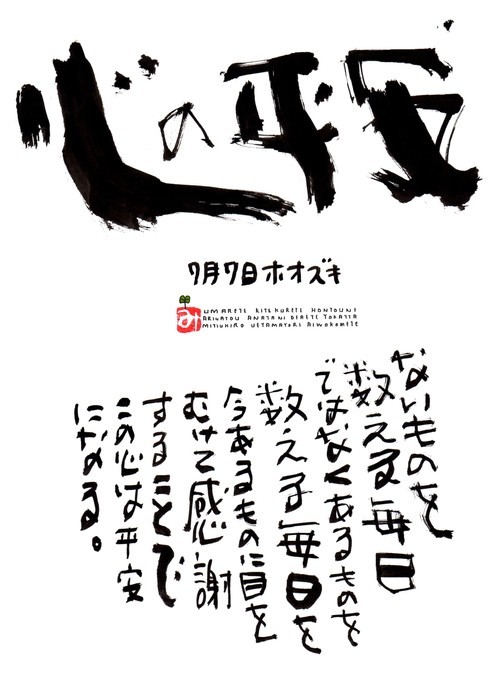 心の平安
7月7日ホオズキ
み
UMARETE KITEKURETE HONTOUNI
ARIGATOU ANATANI DEAETE YOKATTA
MITIHIRO UEYAMATORI AIWOKOMETE
ないものを
数える毎日
ではなくあるものを
数える毎日を
今あるものに目を
むけて感謝
することで
この心は平安
になる。